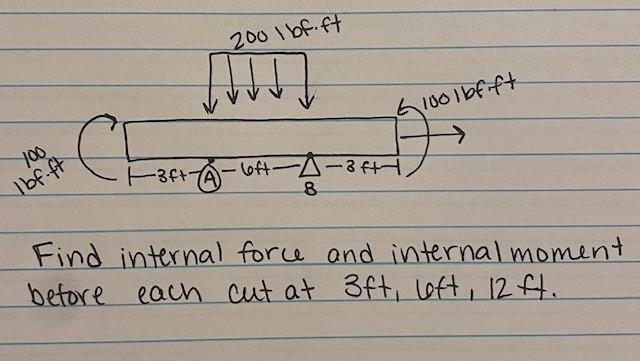 200 lbf.ft
100 lbf.ft
100
lbf.ft
3ft
A
6ft
B
3 ft
Find internal force and internal moment
before each cut at 3ft, 6ft, 12 ft.